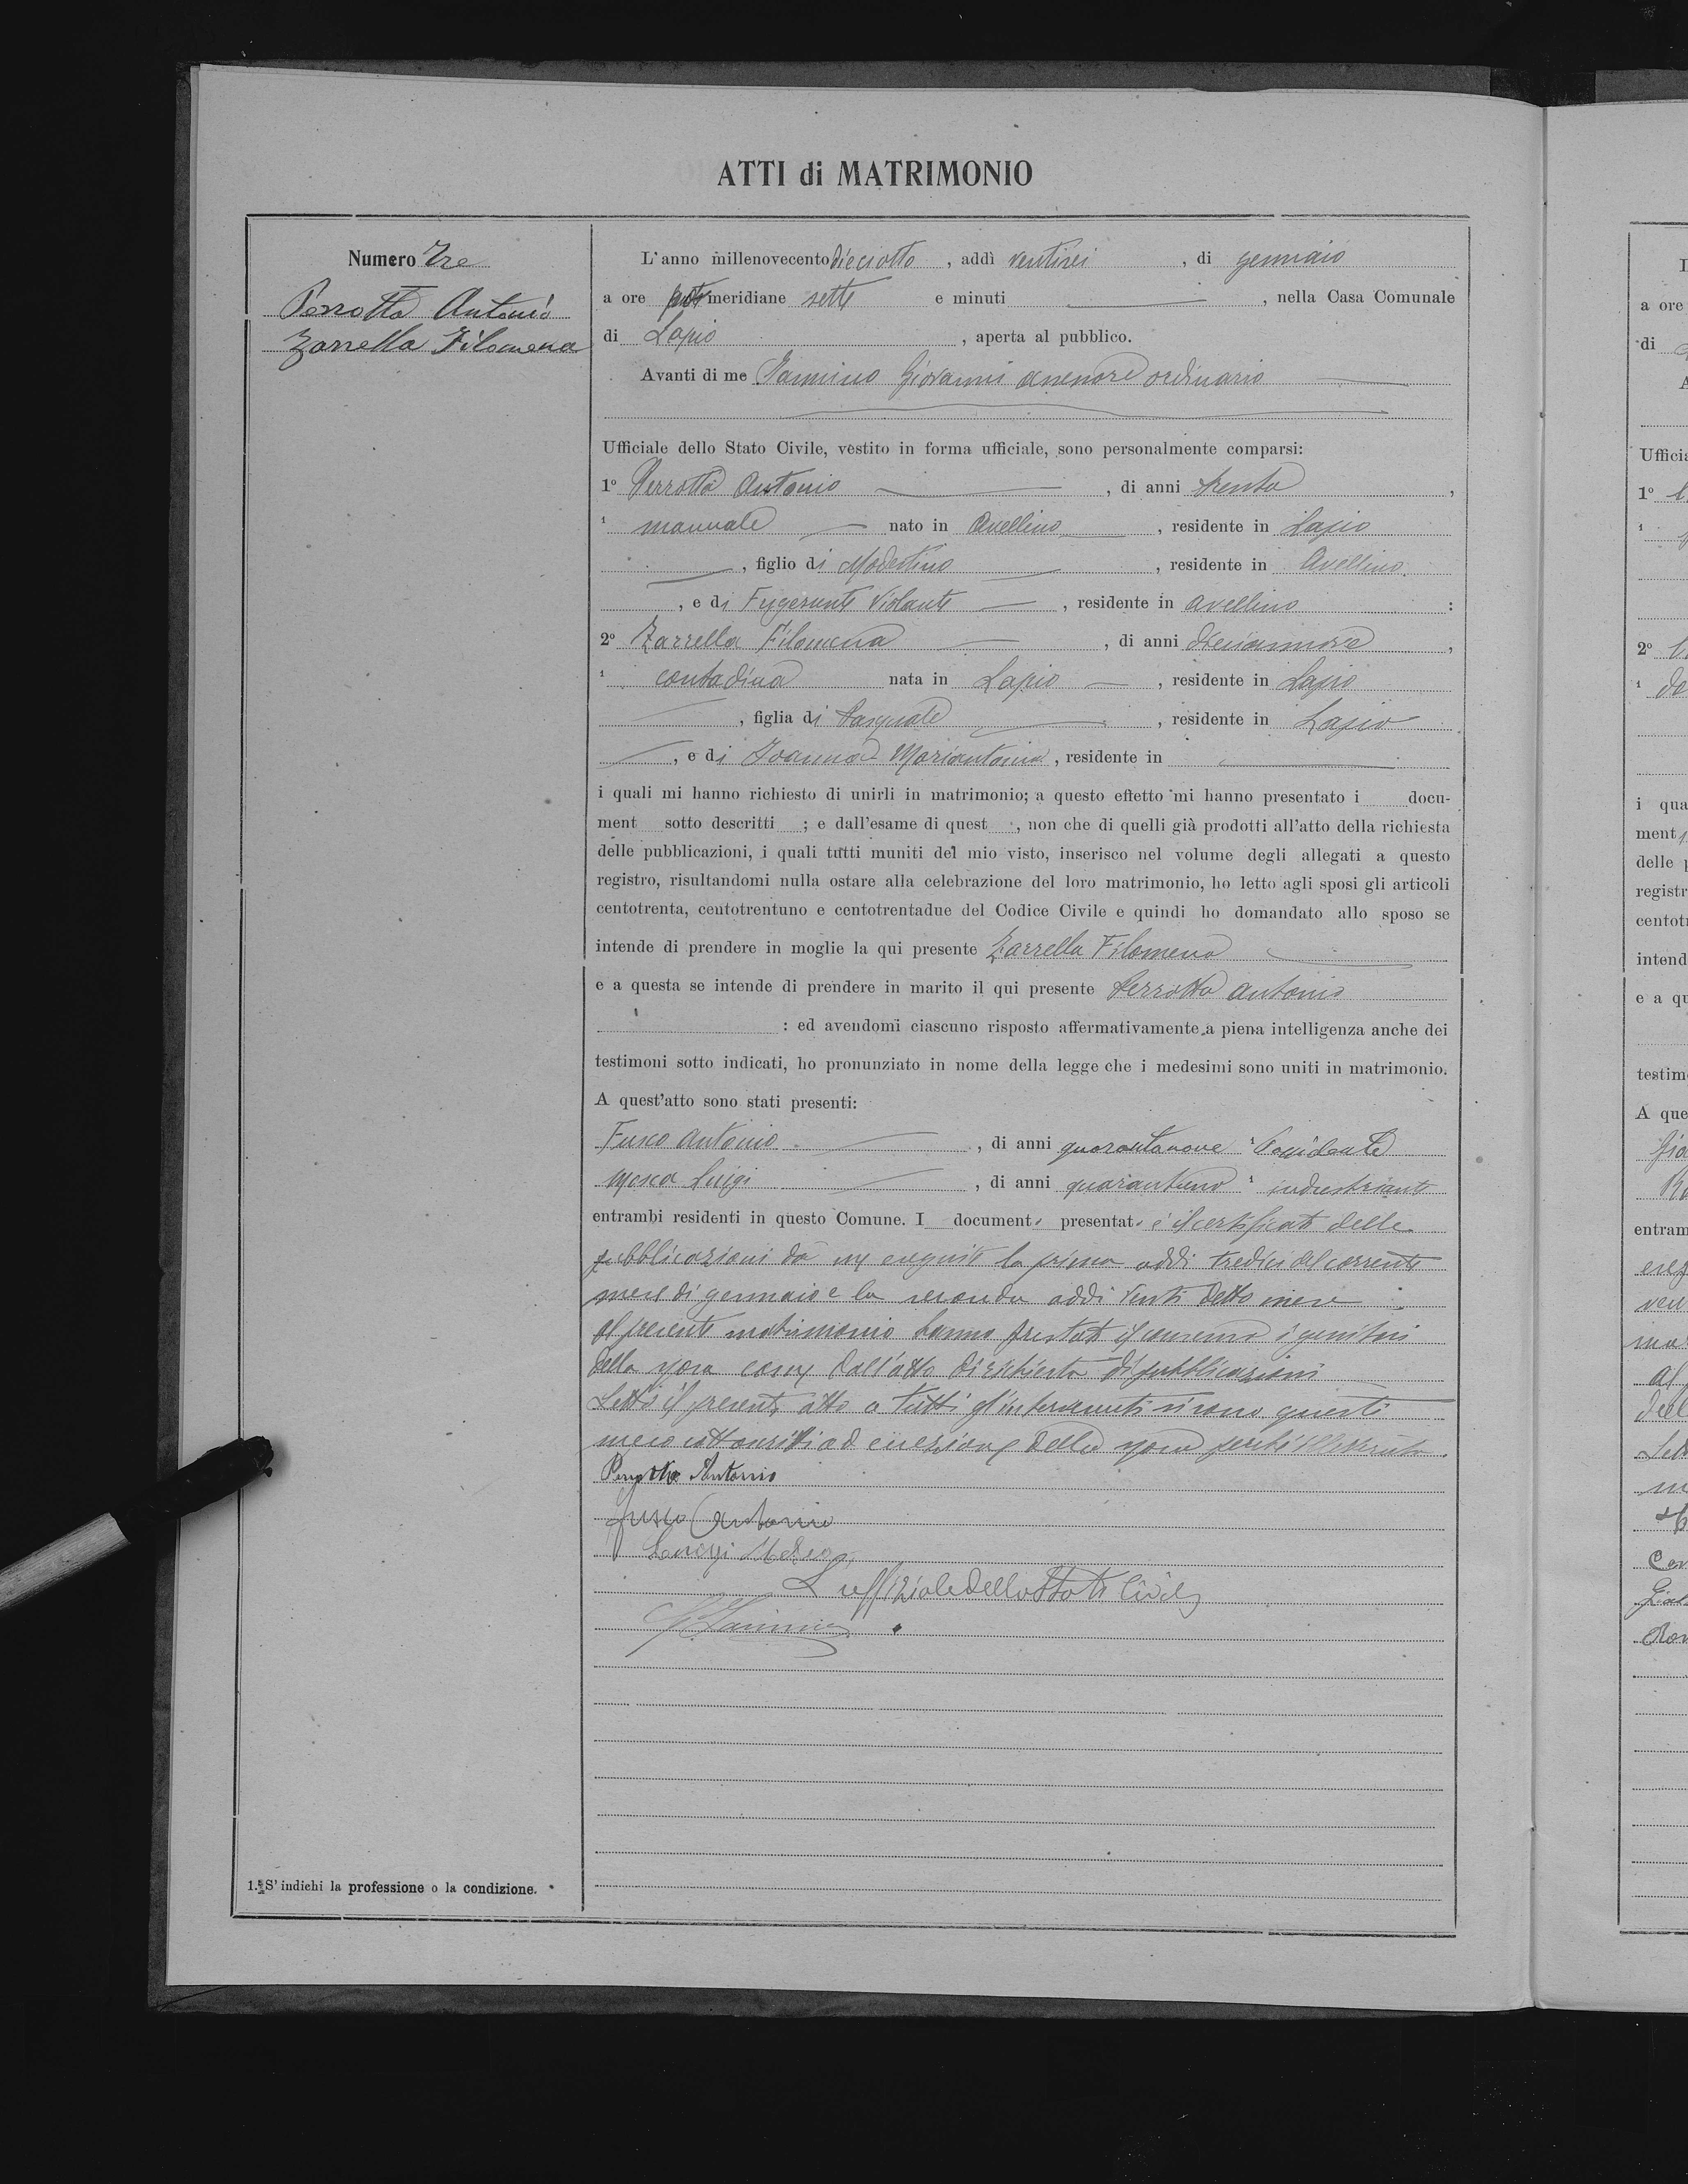 ATTI di MATRIMONIO
Numero Tre
Perrotta Antonio
Zarrella Filomena
1. S' indichi la professione o la condizione.
L'anno millenovecentodieciotto, addì ventisei, di gennaio
a ore meridiane sette e minuti, nella Casa Comunale
di Lapio, aperta al pubblico.
Avanti di me Iannino Giovanni assessore ordinario
Ufficiale dello Stato Civile, vestito in forma ufficiale, sono personalmente comparsi:
1º Perrotta Antonio, di anni trenta,
1 manuale nato in Avellino, residente in Lapio
, figlio di Modestino, residente in Avellino
, e di Violante, residente in Avellino:
2º Zarrella Filomena, di anni diciannove,
1 contadina nata in Lapio, residente in Lapio
, figlia di Pasquale, residente in Lapio
, e di Ioanna Mariantonia, residente in
i quali mi hanno richiesto di unirli in matrimonio; a questo effetto mi hanno presentato i docu-
ment sotto descritti ; e dall'esame di quest , non che di quelli già prodotti all'atto della richiesta
delle pubblicazioni, i quali tutti muniti del mio visto, inserisco nel volume degli allegati a questo
registro, risultandomi nulla ostare alla celebrazione del loro matrimonio, ho letto agli sposi gli articoli
centotrenta, centotrentuno e centotrentadue del Codice Civile e quindi ho domandato allo sposo se
intende di prendere in moglie la qui presente Zarrella Filomena
e a questa se intende di prendere in marito il qui presente Perrotta Antonio
: ed avendomi ciascuno risposto affermativamente a piena intelligenza anche dei
testimoni sotto indicati, ho pronunziato in nome della legge che i medesimi sono uniti in matrimonio.
A quest'atto sono stati presenti:
Fusco Antonio, di anni quarantanove 1 Possidente
Mosca Luigi, di anni quarantuno 1 industriante
entrambi residenti in questo Comune. I document presentat è il certificato delle
pubblicazioni da me eseguite la prima addì tredici del corrente
mese di gennaio e la seconda addì venti detto mese
Al presente matrimonio hanno prestato il consenso i genitori
della sposa come dall'atto di richiesta di pubblicazioni
Letto il presente atto a tutti gl'intervenuti si sono questi
meco sottoscritti ad eccezione della sposa perchè illetterata.
Perrotta Antonio
Fusco Antonio
Luigi Mosca
L'uffiziale dello Stato Civile
G. Iannino